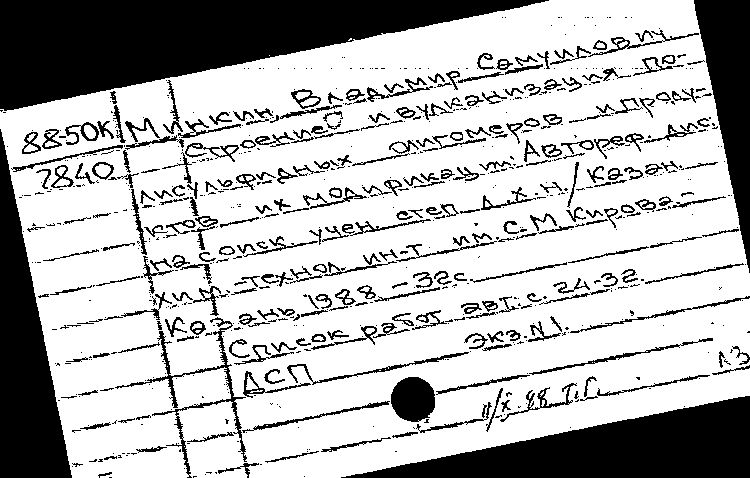 88-50К Минкин, Владимир Самуилович
2840 Строение и вулканизация по-
лисульфидных олигомеров и проду-
ктов их модификации: Автореф. дис.
на соиск. учен. степ. д. х. н. / Казан.
хим.-технол. ин-т им. С. М. Кирова.-
Казань, 1988. - 32 с.
Список работ авт.: с. 24-32.
ДСП Экз. N 1.
11/X. 88 Т. Г. ЛЗ